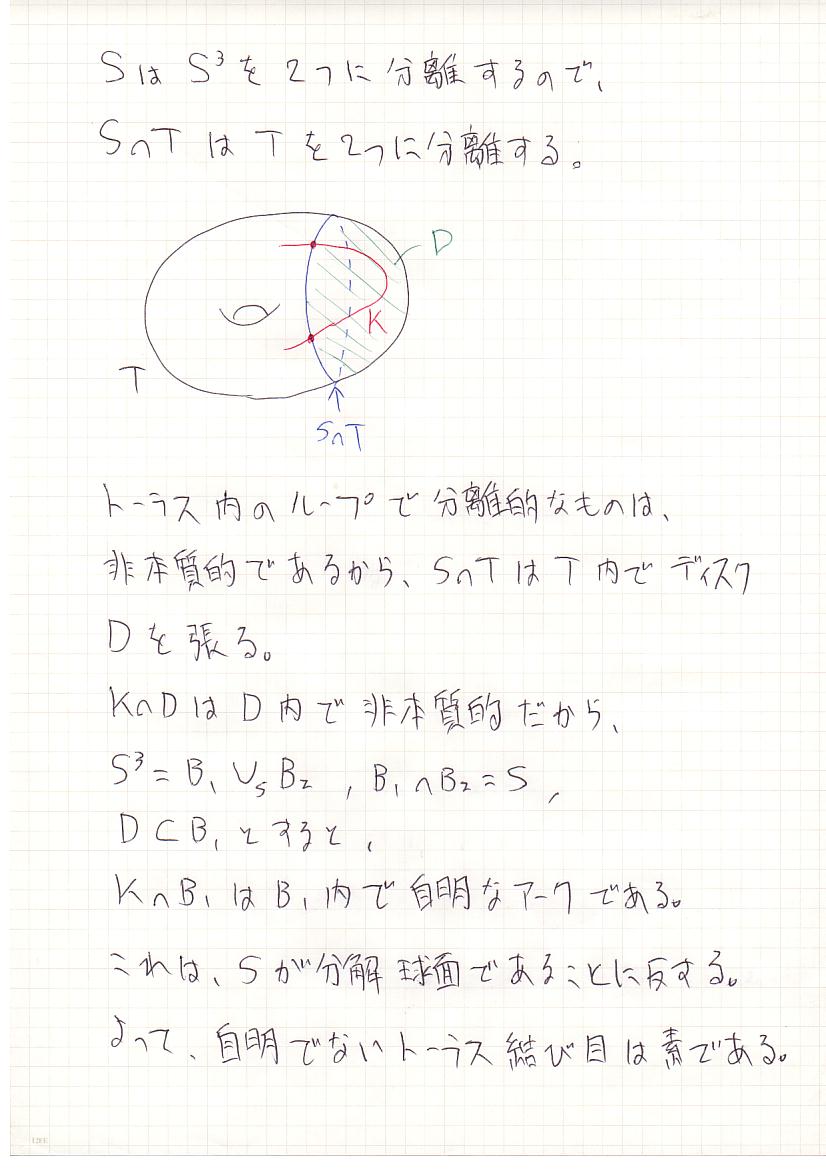 SはS³を2つに分離するので、
S∩TはTを2つに分離する。
D
K
T
S∩T
トーラス内のループで分離的なものは、
非本質的であるから、S∩TはT内でディスク
Dを張る。
K∩DはD内で非本質的だから、
S³=B₁∪ₛB₂，B₁∩B₂=S，
D⊂B₁とすると，
K∩B₁はB₁内で自明なアークである。
これは、Sが分解球面であることに反する。
よって、自明でないトーラス結び目は素である。